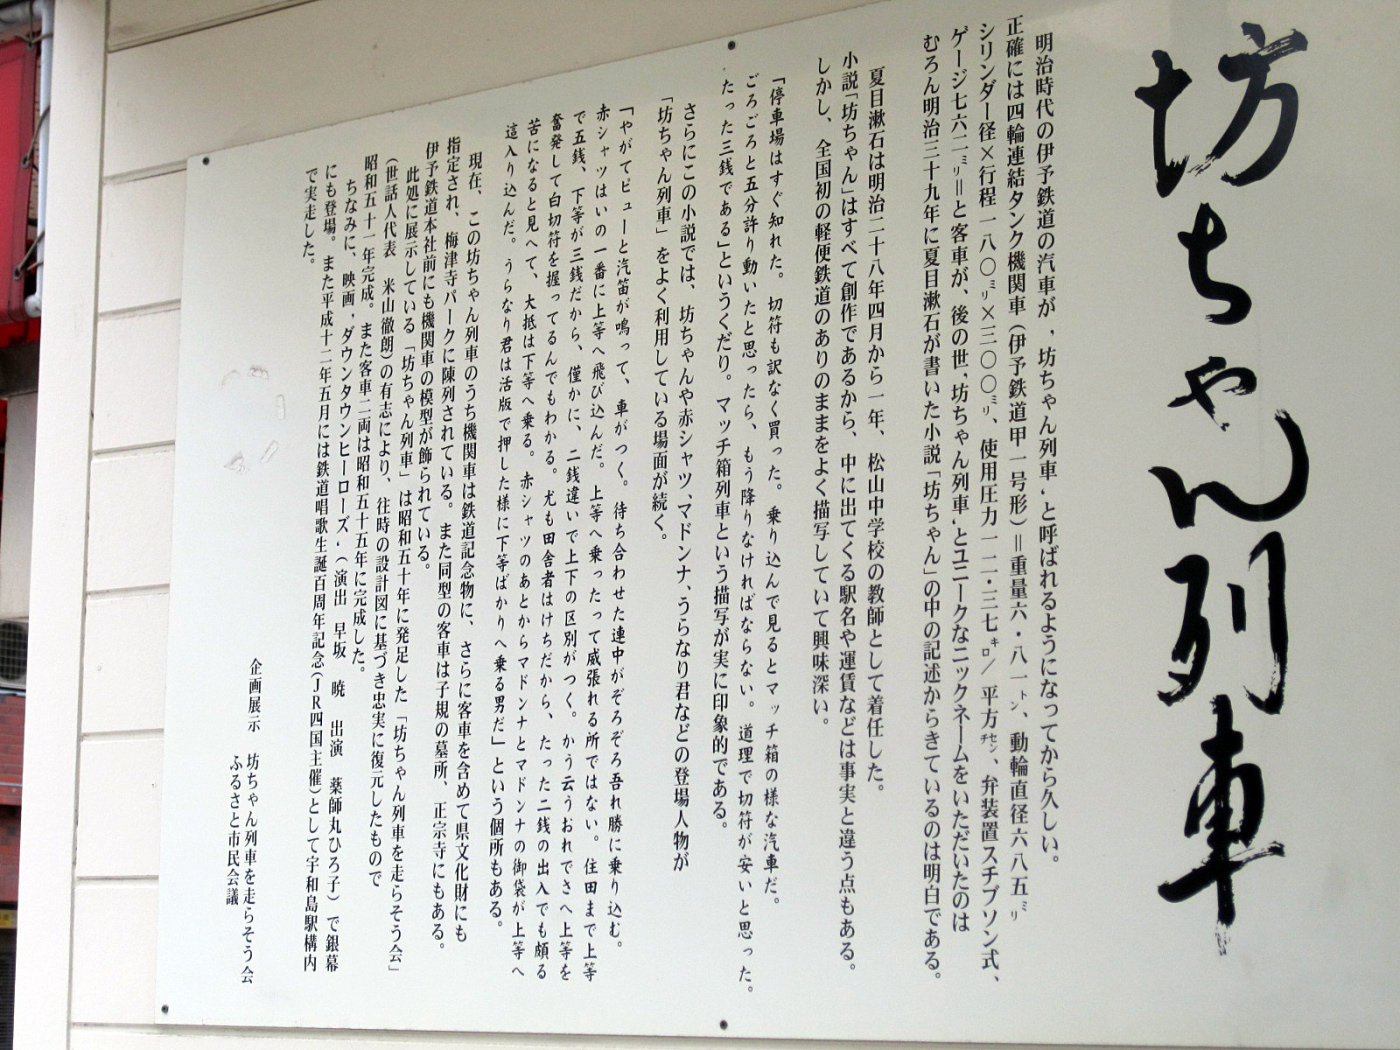 坊ちゃん列車
明治時代の伊予鉄道の汽車が，坊ちゃん列車，と呼ばれるようになってから久しい。
正確には四輪連結タンク機関車（伊予鉄道甲一号形）＝重量六・八一㌧、動輪直径六八五㍉
シリンダー径×行程一八〇㍉×三〇〇㍉、使用圧力一二・三七㌔／平方㌢、弁装置スチブソン式、
ゲージ七六二㍉＝と客車が、後の世，坊ちゃん列車，とユニークなニックネームをいただいたのは
むろん明治三十九年に夏目漱石が書いた小説「坊ちゃん」の中の記述からきているのは明白である。
夏目漱石は明治二十八年四月から一年、松山中学校の教師として着任した。
小説「坊ちゃん」はすべて創作であるから、中に出てくる駅名や運賃などは事実と違う点もある。
しかし、全国初の軽便鉄道のありのままをよく描写していて興味深い。
「停車場はすぐ知れた。切符も訳なく買った。乗り込んで見るとマッチ箱の様な汽車だ。
ごろごろと五分許り動いたと思ったら、もう降りなければならない。道理で切符が安いと思った。
たった三銭である」というくだり。マッチ箱列車という描写が実に印象的である。
さらにこの小説では、坊ちゃんや赤シャツ、マドンナ、うらなり君などの登場人物が
「坊ちゃん列車」をよく利用している場面が続く。
「やがてピューと汽笛が鳴って、車がつく。待ち合わせた連中がぞろぞろ吾れ勝に乗り込む。
赤シャツはいの一番に上等へ飛び込んだ。上等へ乗ったって威張れる所ではない。住田まで上等
で五銭、下等が三銭だから、僅かに、二銭違いで上下の区別がつく。かう云うおれでさへ上等を
奮発して白切符を握ってるんでもわかる。尤も田舎者はけちだから、たった二銭の出入でも頗る
苦になると見へて、大抵は下等へ乗る。赤シャツのあとからマドンナとマドンナの御袋が上等へ
這入り込んだ。うらなり君は活版で押した様に下等ばかりへ乗る男だ」という個所もある。
現在、この坊ちゃん列車のうち機関車は鉄道記念物に、さらに客車を含めて県文化財にも
指定され、梅津寺パークに陳列されている。また同型の客車は子規の墓所、正宗寺にもある。
伊予鉄道本社前にも機関車の模型が飾られている。
此処に展示している「坊ちゃん列車」は昭和五十年に発足した「坊ちゃん列車を走らそう会」
（世話人代表　米山徹朗）の有志により、往時の設計図に基づき忠実に復元したもので
昭和五十一年完成。また客車二両は昭和五十五年に完成した。
ちなみに、映画，ダウンタウンヒーローズ，（演出　早坂　暁　出演　薬師丸ひろ子）で銀幕
にも登場。また平成十二年五月には鉄道唱歌生誕百周年記念（ＪＲ四国主催）として宇和島駅構内
で実走した。
企画展示　坊ちゃん列車を走らそう会
ふるさと市民会議